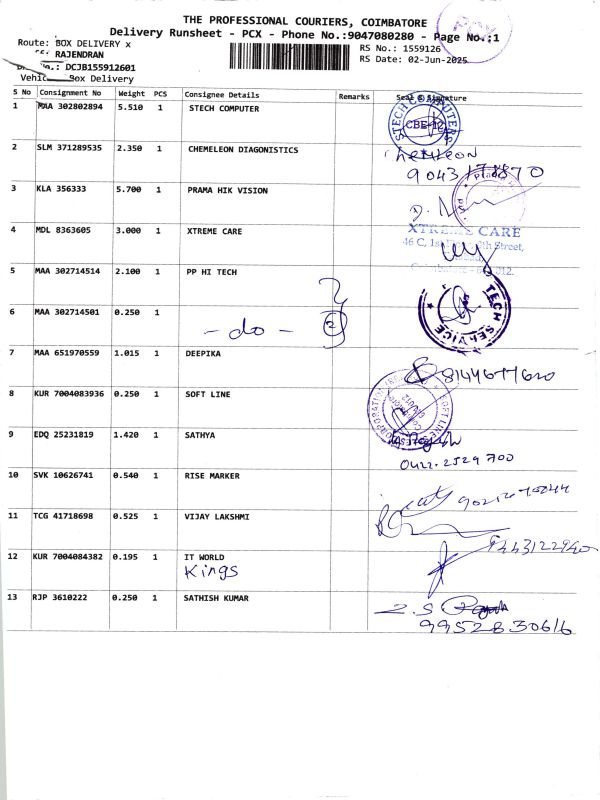 THE PROFESSIONAL COURIERS, COIMBATORE
Delivery Runsheet - PCX - Phone No.:9047080280 - Page No.:1
Route: BOX DELIVERY x
RS No.: 1559126
RAJENDRAN
RS Date: 02-Jun-2025
DCJB155912601
Box Delivery
S No Consignment No Weight PCS Consignee Details Remarks Seal & Signature
1 MAA 302802894 5.510 1 STECH COMPUTER
STECH COMPUTERS
CBE-12
2 SLM 371289535 2.350 1 CHEMELEON DIAGONISTICS
3 KLA 356333 5.700 1 PRAMA HIK VISION
4 MDL 8363605 3.000 1 XTREME CARE
XTREME CARE
46 C, 1st Street,
5 MAA 302714514 2.100 1 PP HI TECH
6 MAA 302714501 0.250 1
- do - 2
TECH SERVICE
7 MAA 651970559 1.015 1 DEEPIKA
8 KUR 7004083936 0.250 1 SOFT LINE
9 EDQ 25231819 1.420 1 SATHYA
0422-2529700
10 SVK 10626741 0.540 1 RISE MARKER
11 TCG 41718698 0.525 1 VIJAY LAKSHMI
9443122940
12 KUR 7004084382 0.195 1 IT WORLD
Kings
13 RJP 3610222 0.250 1 SATHISH KUMAR
9952830616